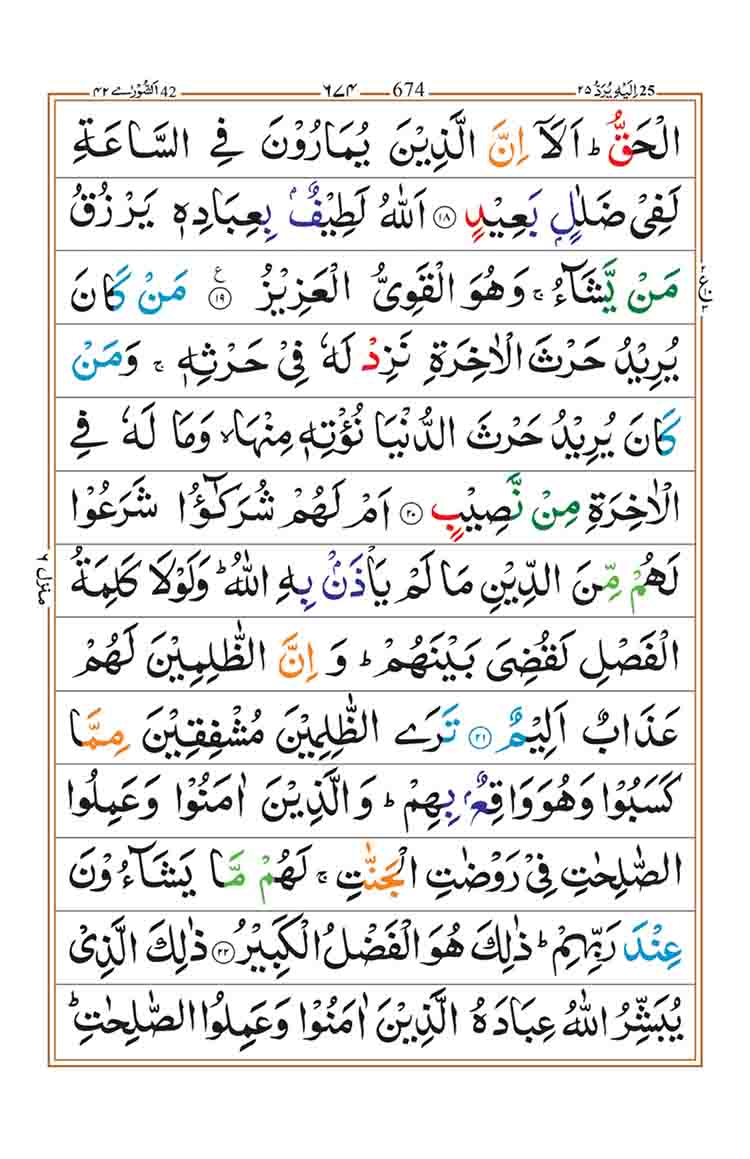 25 اِلَيْهِ يُرَدُّ ٢٥ 674 ٦٧٤ 42 اَلشُّوْرٰى ٤٢
الْحَقُّ ؕ اَلَاۤ اِنَّ الَّذِيْنَ يُمَارُوْنَ فِي السَّاعَةِ
لَفِيْ ضَلٰلٍۭ بَعِيْدٍ ﴿١٨﴾ اَللّٰهُ لَطِيْفٌۢ بِعِبَادِهٖ يَرْزُقُ
مَنْ يَّشَآءُ ۚ وَهُوَ الْقَوِيُّ الْعَزِيْزُ ﴿١٩﴾ ع مَنْ كَانَ
يُرِيْدُ حَرْثَ الْاٰخِرَةِ نَزِدْ لَهٗ فِيْ حَرْثِهٖ ۚ وَمَنْ
كَانَ يُرِيْدُ حَرْثَ الدُّنْيَا نُؤْتِهٖ مِنْهَا ۙ وَمَا لَهٗ فِي
الْاٰخِرَةِ مِنْ نَّصِيْبٍ ﴿٢٠﴾ اَمْ لَهُمْ شُرَكٰٓؤُا شَرَعُوْا
لَهُمْ مِّنَ الدِّيْنِ مَا لَمْ يَاْذَنْۢ بِهِ اللّٰهُ ؕ وَلَوْلَا كَلِمَةُ
الْفَصْلِ لَقُضِيَ بَيْنَهُمْ ؕ وَ اِنَّ الظّٰلِمِيْنَ لَهُمْ
عَذَابٌ اَلِيْمٌ ﴿٢١﴾ تَرَى الظّٰلِمِيْنَ مُشْفِقِيْنَ مِمَّا
كَسَبُوْا وَهُوَ وَاقِعٌۢ بِهِمْ ؕ وَالَّذِيْنَ اٰمَنُوْا وَعَمِلُوا
الصّٰلِحٰتِ فِيْ رَوْضٰتِ الْجَنّٰتِ ۚ لَهُمْ مَّا يَشَآءُوْنَ
عِنْدَ رَبِّهِمْ ؕ ذٰلِكَ هُوَ الْفَضْلُ الْكَبِيْرُ ﴿٢٢﴾ ذٰلِكَ الَّذِيْ
يُبَشِّرُ اللّٰهُ عِبَادَهُ الَّذِيْنَ اٰمَنُوْا وَعَمِلُوا الصّٰلِحٰتِ ؕ
منزل ٦